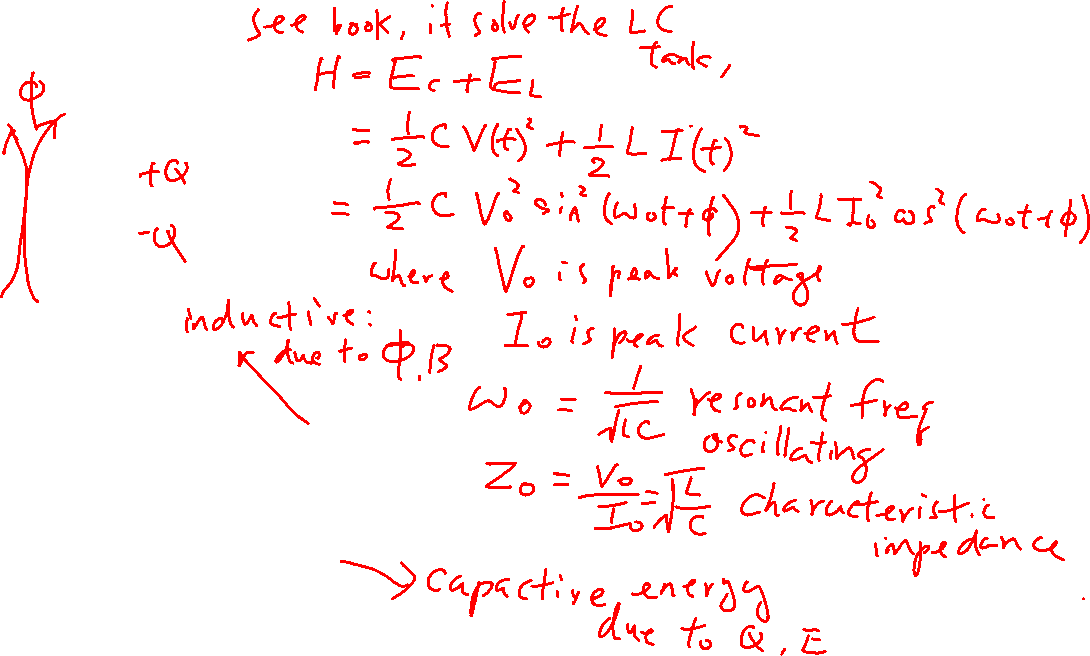 see book, it solve the LC
tank,
Φ
H = E_C + E_L
= 1/2 C V(t)² + 1/2 L I(t)²
+Q
= 1/2 C V₀² sin² (ω₀t+φ) + 1/2 L I₀² cos² (ω₀t+φ)
-Q
where V₀ is peak voltage
inductive:
due to Φ, B
I₀ is peak current
ω₀ = 1/√LC resonant freq
oscillating
Z₀ = V₀/I₀ = √L/C characteristic
impedance
capactive energy
due to Q, E